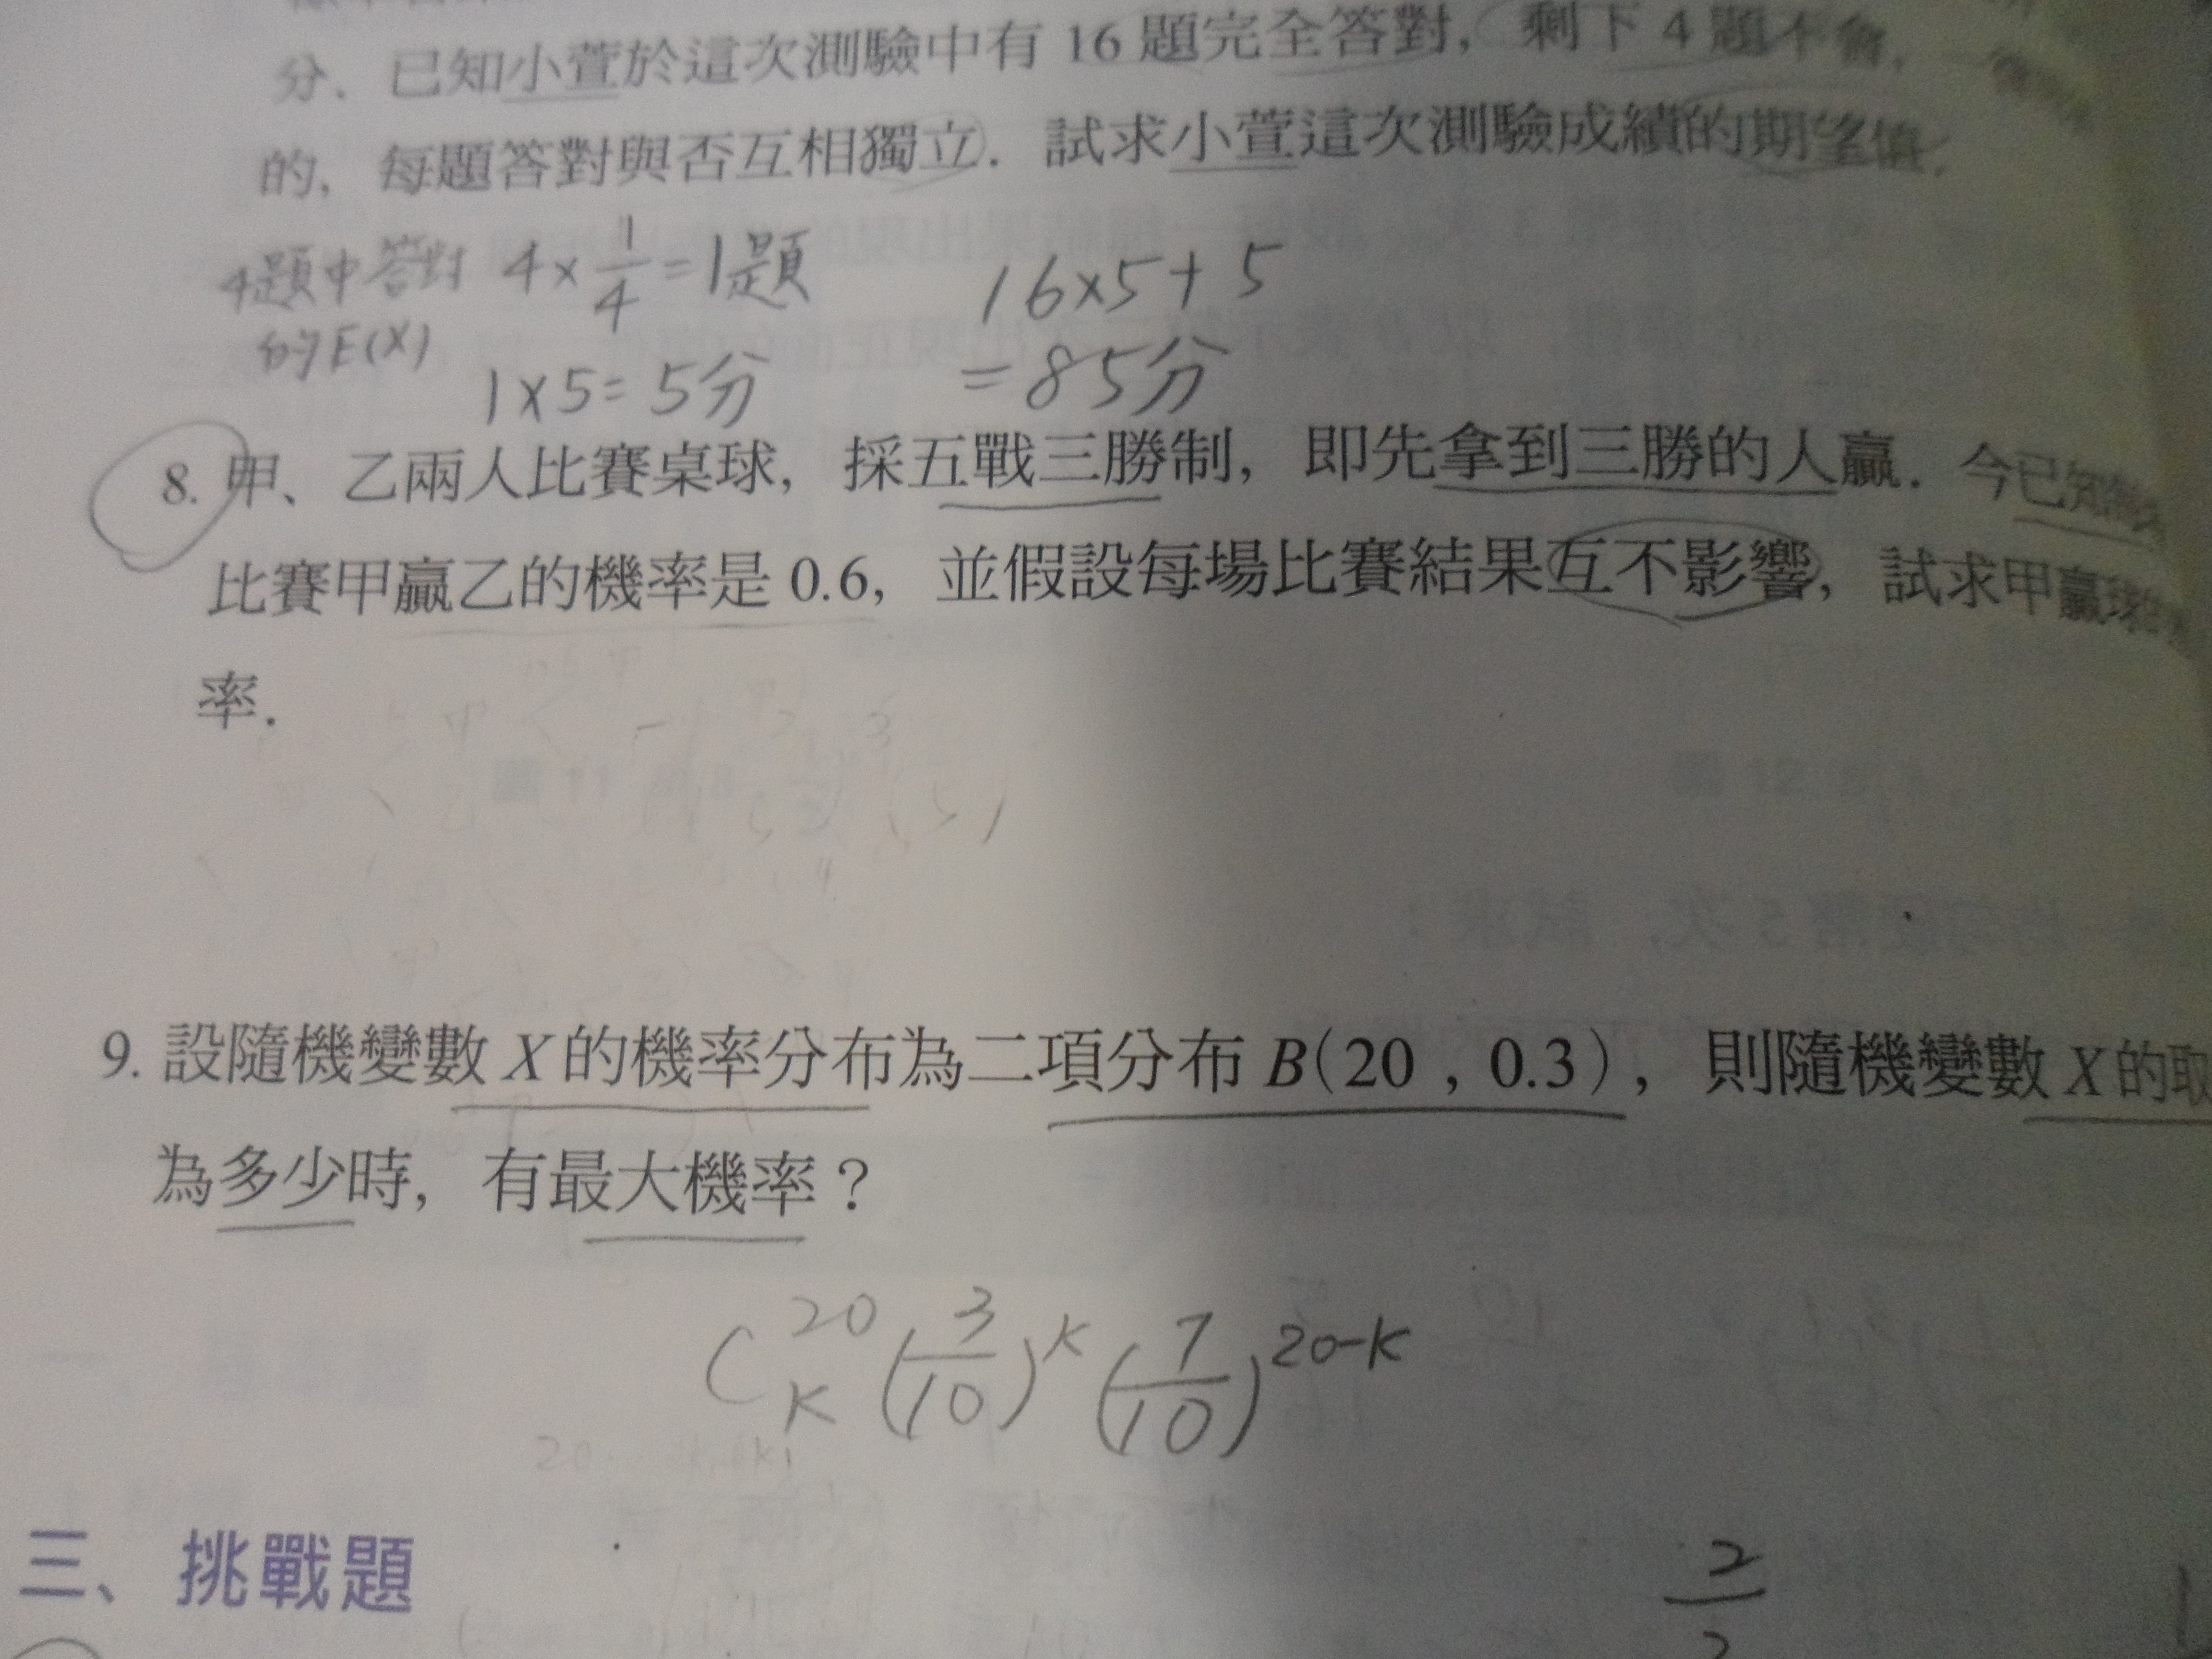 分．已知小萱於這次測驗中有 16 題完全答對，剩下 4 題不會，
的，每題答對與否互相獨立．試求小萱這次測驗成績的期望值．
4題中答對 4×1/4=1題 16×5+5
的E(X) 1×5=5分 =85分
8. 甲、乙兩人比賽桌球，採五戰三勝制，即先拿到三勝的人贏．今已知
比賽甲贏乙的機率是 0.6，並假設每場比賽結果互不影響，試求甲贏球
率．
9. 設隨機變數 X 的機率分布為二項分布 B(20，0.3)，則隨機變數 X 的取
為多少時，有最大機率？
C 20 K (3/10)^K (7/10)^20-K
三、挑戰題
2